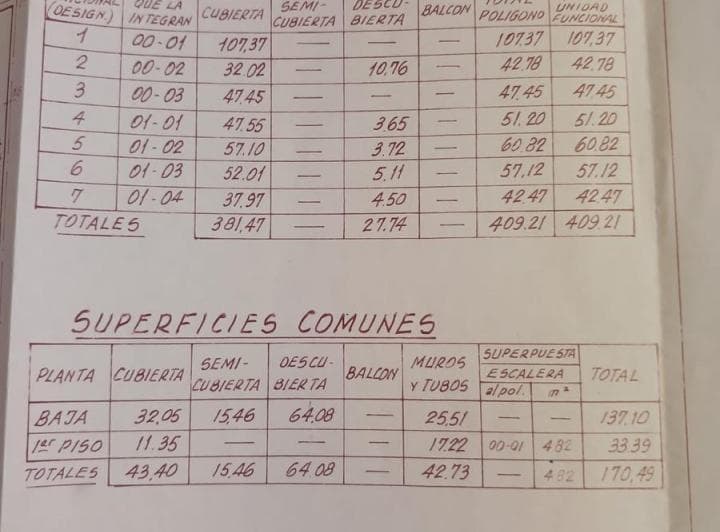 (DESIGN.) QUE LA INTEGRAN CUBIERTA SEMI-CUBIERTA DESCU-BIERTA BALCON TOTAL POLIGONO UNIDAD FUNCIONAL
1 00-01 107,37 — — — 107,37 107,37
2 00-02 32.02 — 10,76 — 42.78 42.78
3 00-03 47.45 — — — 47.45 47.45
4 01-01 47.55 — 3.65 — 51.20 51.20
5 01-02 57.10 — 3.72 — 60.82 60.82
6 01-03 52.01 — 5.11 — 57.12 57.12
7 01-04 37,97 — 4.50 — 42.47 42.47
TOTALES 381,47 — 27.74 — 409.21 409.21
SUPERFICIES COMUNES
PLANTA CUBIERTA SEMI-CUBIERTA DESCU-BIERTA BALCON MUROS Y TUBOS SUPERPUESTA ESCALERA a/pol. m² TOTAL
BAJA 32,05 15,46 64,08 — 25,51 — — 137.10
1er PISO 11.35 — — — 17.22 00-01 4.82 33.39
TOTALES 43,40 15,46 64.08 — 42.73 — 4.82 170,49